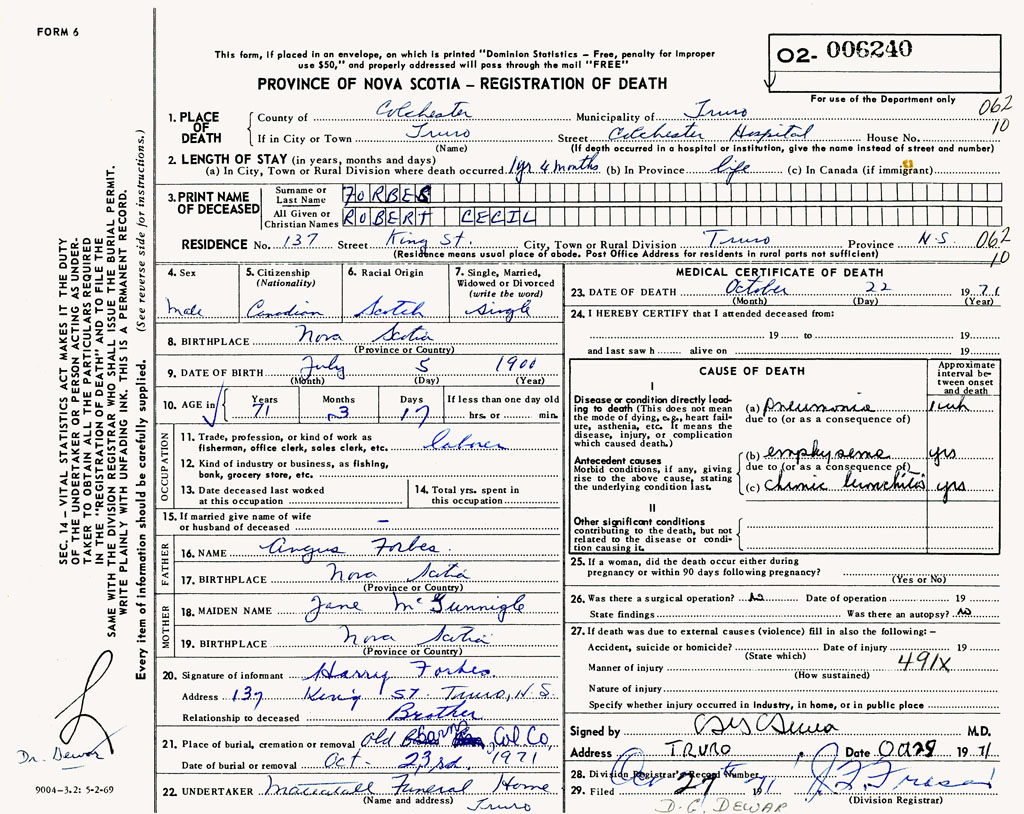 FORM 6
This form, if placed in an envelope, on which is printed "Dominion Statistics – Free, penalty for improper
use $50," and properly addressed will pass through the mail "FREE"
PROVINCE OF NOVA SCOTIA – REGISTRATION OF DEATH
O2- 006240
For use of the Department only
062
10
1. PLACE OF DEATH
County of Colchester Municipality of Truro
If in City or Town Truro Street Colchester Hospital House No.
(Name) (If death occurred in a hospital or institution, give the name instead of street and number)
2. LENGTH OF STAY (in years, months and days)
(a) In City, Town or Rural Division where death occurred 1 yr 4 months (b) In Province life (c) In Canada (if immigrant)
3. PRINT NAME OF DECEASED
Surname or Last Name FORBES
All Given or Christian Names ROBERT CECIL
RESIDENCE No. 137 Street King St. City, Town or Rural Division Truro Province N.S. 062
(Residence means usual place of abode. Post Office Address for residents in rural parts not sufficient) 10
4. Sex Male
5. Citizenship (Nationality) Canadian
6. Racial Origin Scotch
7. Single, Married, Widowed or Divorced (write the word) Single
8. BIRTHPLACE Nova Scotia
(Province or Country)
9. DATE OF BIRTH July 5 1900
(Month) (Day) (Year)
10. AGE in Years 71 Months 3 Days 17 If less than one day old
hrs. or min.
OCCUPATION
11. Trade, profession, or kind of work as
fisherman, office clerk, sales clerk, etc. laborer
12. Kind of industry or business, as fishing,
bank, grocery store, etc.
13. Date deceased last worked
at this occupation
14. Total yrs. spent in
this occupation
15. If married give name of wife
or husband of deceased –
FATHER
16. NAME Angus Forbes
17. BIRTHPLACE Nova Scotia
(Province or Country)
MOTHER
18. MAIDEN NAME Jane McGunnigle
19. BIRTHPLACE Nova Scotia
(Province or Country)
20. Signature of informant Harry Forbes
Address 137 King St. Truro, N.S.
Relationship to deceased Brother
21. Place of burial, cremation or removal Old Barns Col. Co,
Date of burial or removal Oct. 23rd, 1971
22. UNDERTAKER Mattatall Funeral Home
(Name and address) Truro
MEDICAL CERTIFICATE OF DEATH
23. DATE OF DEATH October 22 1971
(Month) (Day) (Year)
24. I HEREBY CERTIFY that I attended deceased from:
19 to 19
and last saw h alive on 19
CAUSE OF DEATH
Approximate interval between onset and death
I
Disease or condition directly leading to death (This does not
mean the mode of dying, e.g., heart failure, asthenia, etc. It means the
disease, injury, or complication
which caused death.)
(a) Pneumonia 1 wk
due to (or as a consequence of)
Antecedent causes
Morbid conditions, if any, giving
rise to the above cause, stating
the underlying condition last.
(b) emphysema yrs
due to (or as a consequence of)
(c) Chronic bronchitis yrs
II
Other significant conditions
contributing to the death, but not
related to the disease or condition
causing it.
25. If a woman, did the death occur either during
pregnancy or within 90 days following pregnancy?
(Yes or No)
26. Was there a surgical operation? No Date of operation 19
State findings Was there an autopsy? No
27. If death was due to external causes (violence) fill in also the following: –
Accident, suicide or homicide? Date of injury 19
(State which) 491X
Manner of injury
(How sustained)
Nature of injury
Specify whether injury occurred in industry, in home, or in public place
Signed by M.D.
Address TRURO Date Oct 28 1971
28. Division Registrar's Record Number
29. Filed Oct 27 1971
(Division Registrar)
D. G. DEWAR
SEC. 14 – VITAL STATISTICS ACT MAKES IT THE DUTY
OF THE UNDERTAKER OR PERSON ACTING AS UNDER-
TAKER TO OBTAIN ALL THE PARTICULARS REQUIRED
IN THE "REGISTRATION OF DEATH" AND TO FILE THE
SAME WITH THE DIVISION REGISTRAR WHO SHALL ISSUE THE BURIAL PERMIT.
WRITE PLAINLY WITH UNFADING INK. THIS IS A PERMANENT RECORD.
Every item of information should be carefully supplied. (See reverse side for instructions.)
Dr. Dewar
9004-3.2: 5-2-69